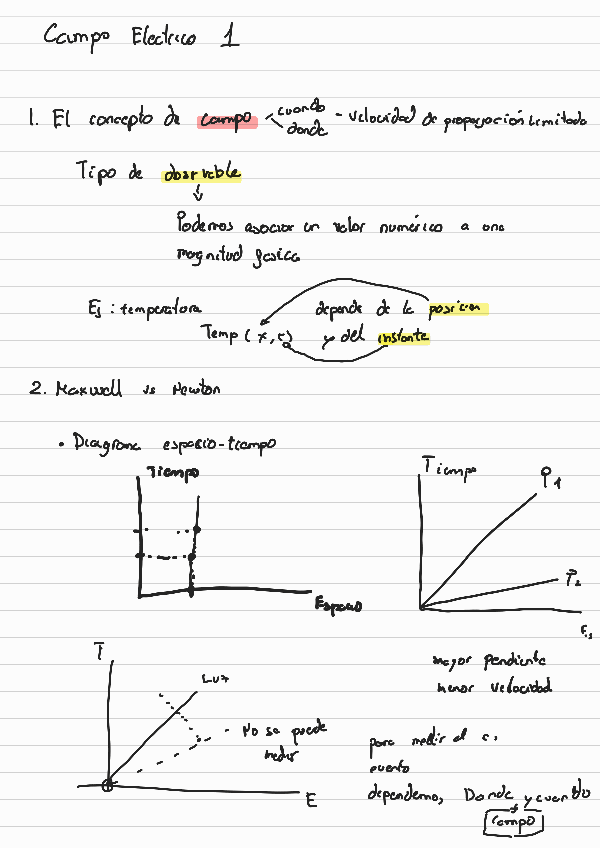 Campo Electrico 1
1. El concepto de campo cuando donde - velocidad de propagación limitada
Tipo de observable
Podemos asociar un valor numérico a una
magnitud fisica
Ej : temperatura depende de la posicion
Temp ( x, t) y del instante
2. Maxwell vs Newton
• Diagrama espacio-tiempo
Tiempo
Espacio
Tiempo
P1
P2
Es
mayor pendiente
menor velocidad
T
Luz
No se puede
medir
E
para medir el
evento
dependemos, Donde y cuando
campo